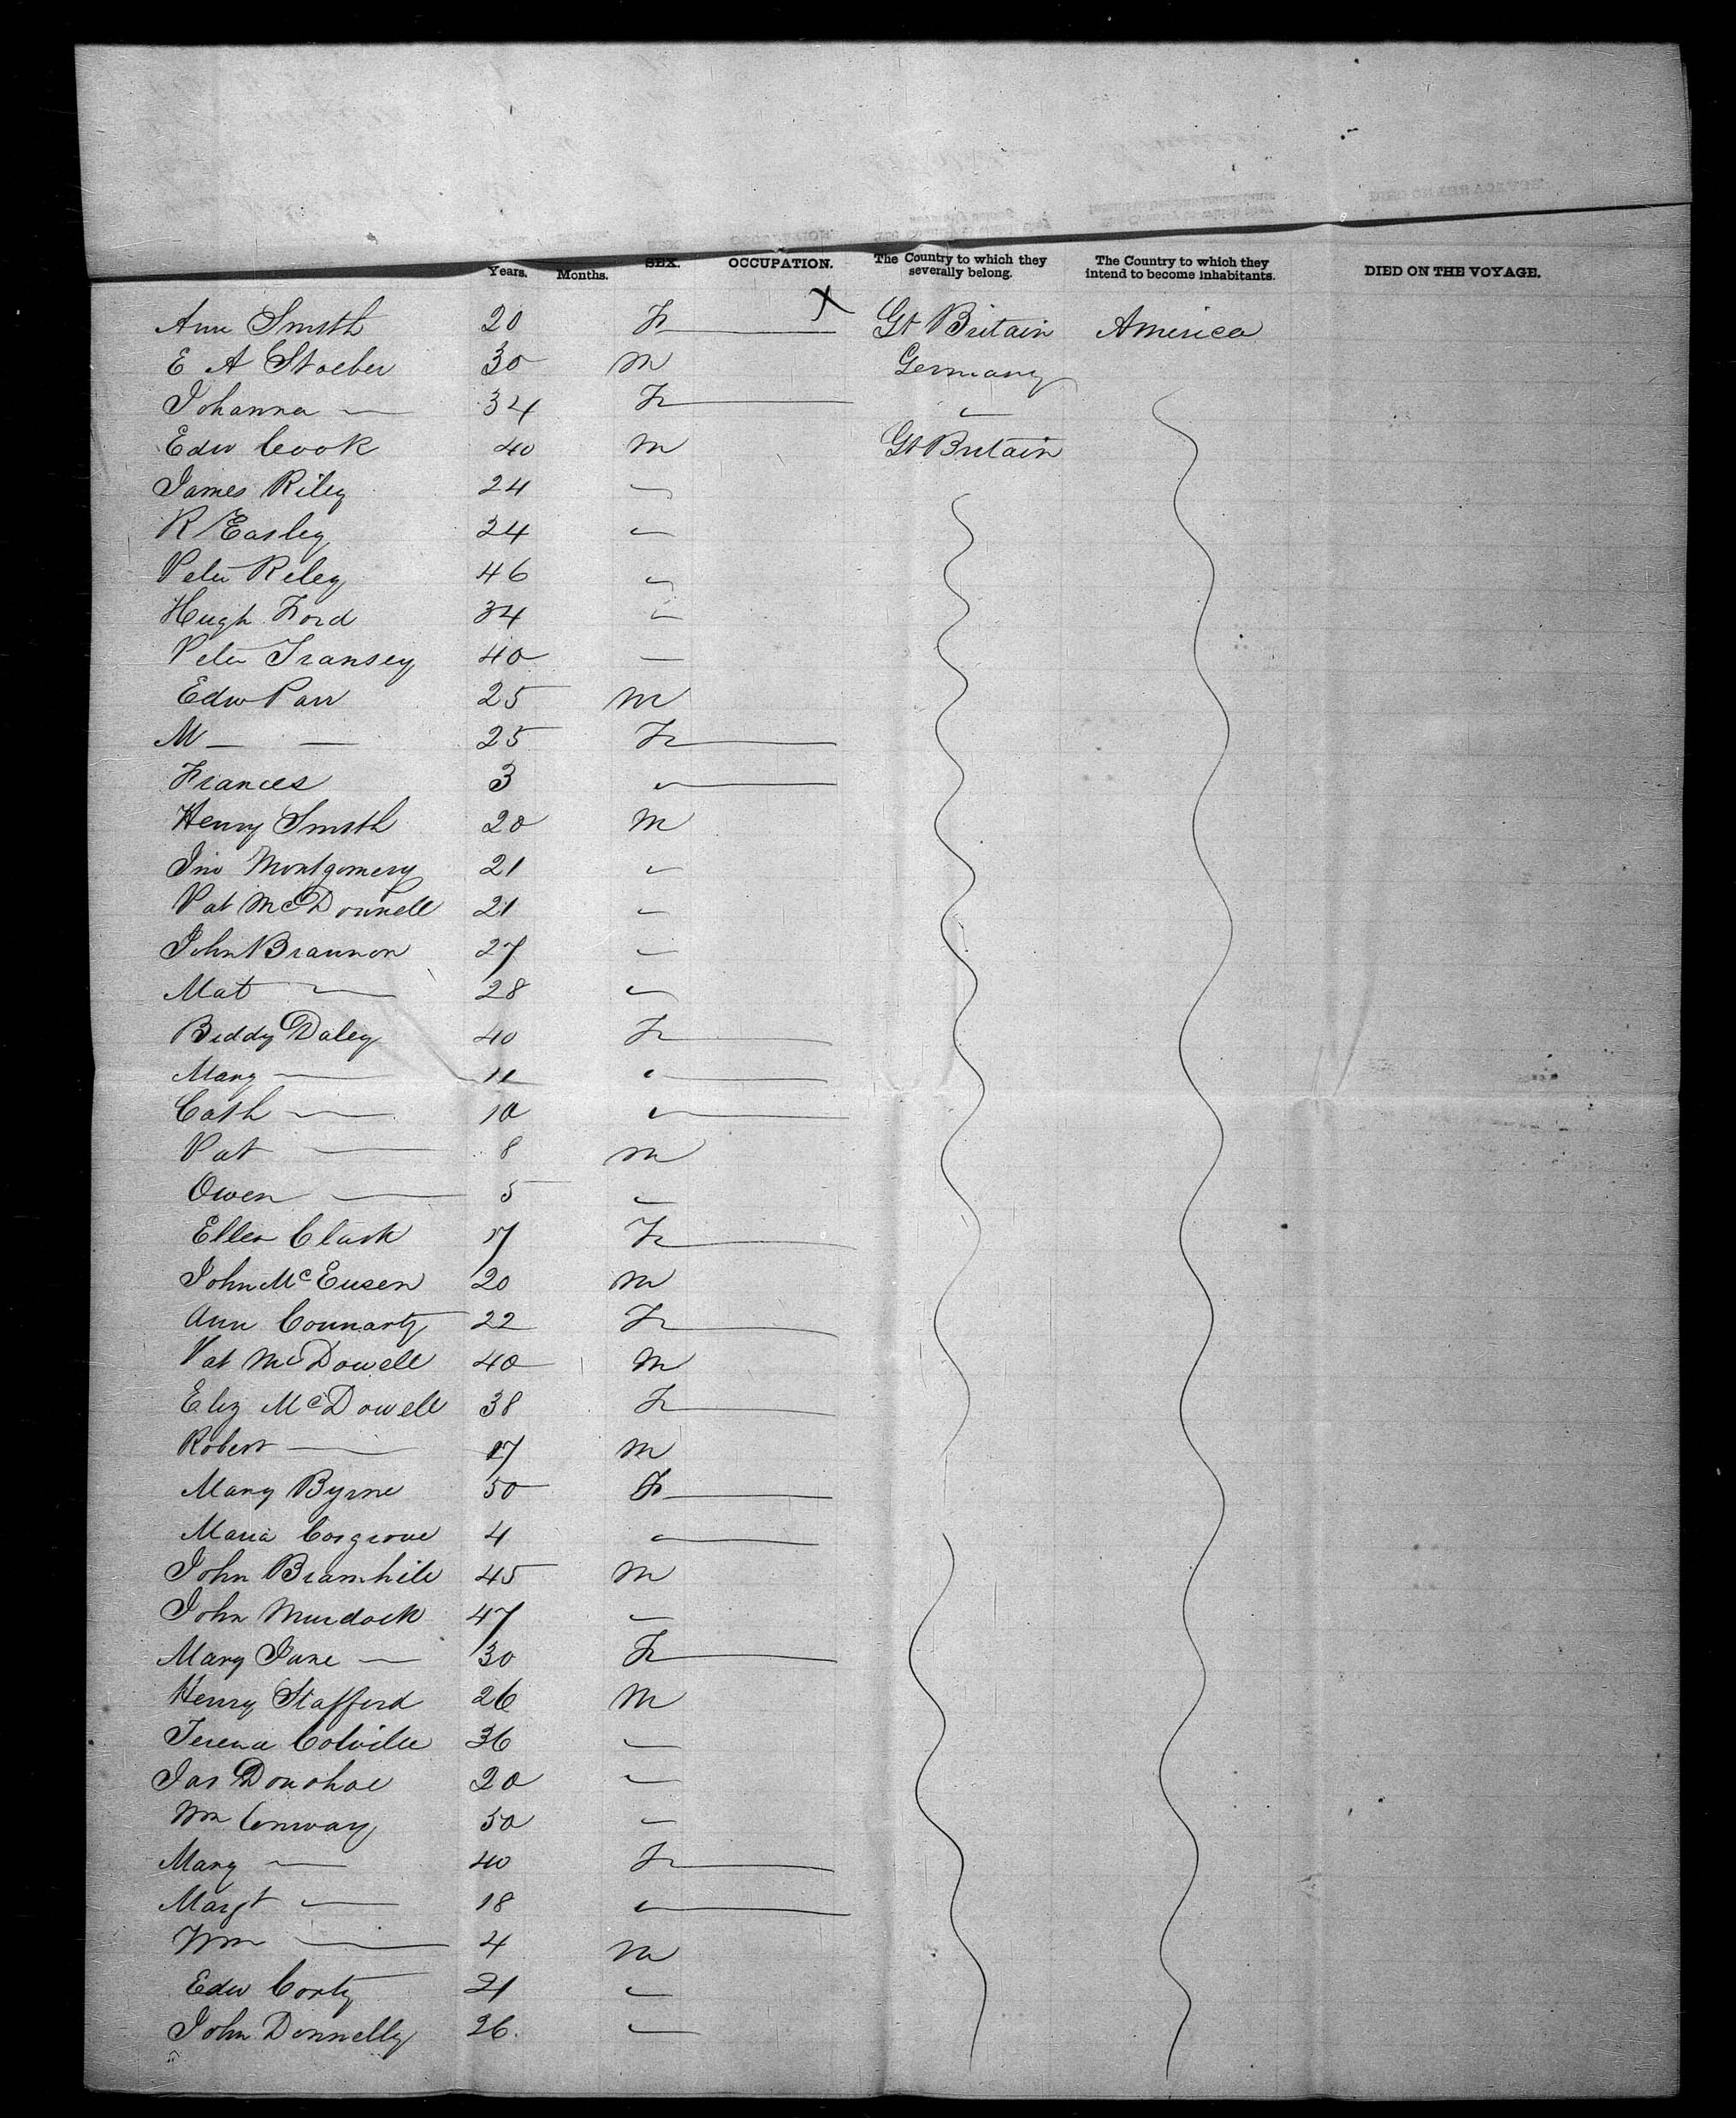 Years. Months. SEX. OCCUPATION. The Country to which they severally belong. The Country to which they intend to become inhabitants. DIED ON THE VOYAGE.
Ann Smith 20 F X Gt Britain America
E A Stoeber 30 M Germany
Johanna — 34 F —
Edw Cook 40 M Gt Britain
James Riley 24 —
R Easley 24 —
Peter Riley 46 —
Hugh Ford 34 —
Peter Transey 40 —
Edw Parr 25 M
M — — 25 F
Frances 3 —
Henry Smith 20 M
Jno Montgomery 21 —
Pat McDonnell 21 —
John Brannon 27 —
Mat — 28 —
Biddy Daley 40 F
Mary — 11 —
Cath — 10 —
Pat — 8 M
Owen — 5 —
Ellen Clark 17 F
John McEusen 20 M
Ann Connarty 22 F
Pat McDowell 40 M
Eliz McDowell 38 F
Robert — 17 M
Mary Byrne 50 F
Maria Cosgrove 4 —
John Bramhile 45 M
John Murdock 47 —
Mary Jane — 30 F
Henry Stafford 26 M
Terence Colville 36 —
Jas Donohoe 20 —
Wm Conway 50 —
Mary — 40 F
Margt — 18 —
Wm — 4 M
Edw Corty 21 —
John Donnelly 26. —